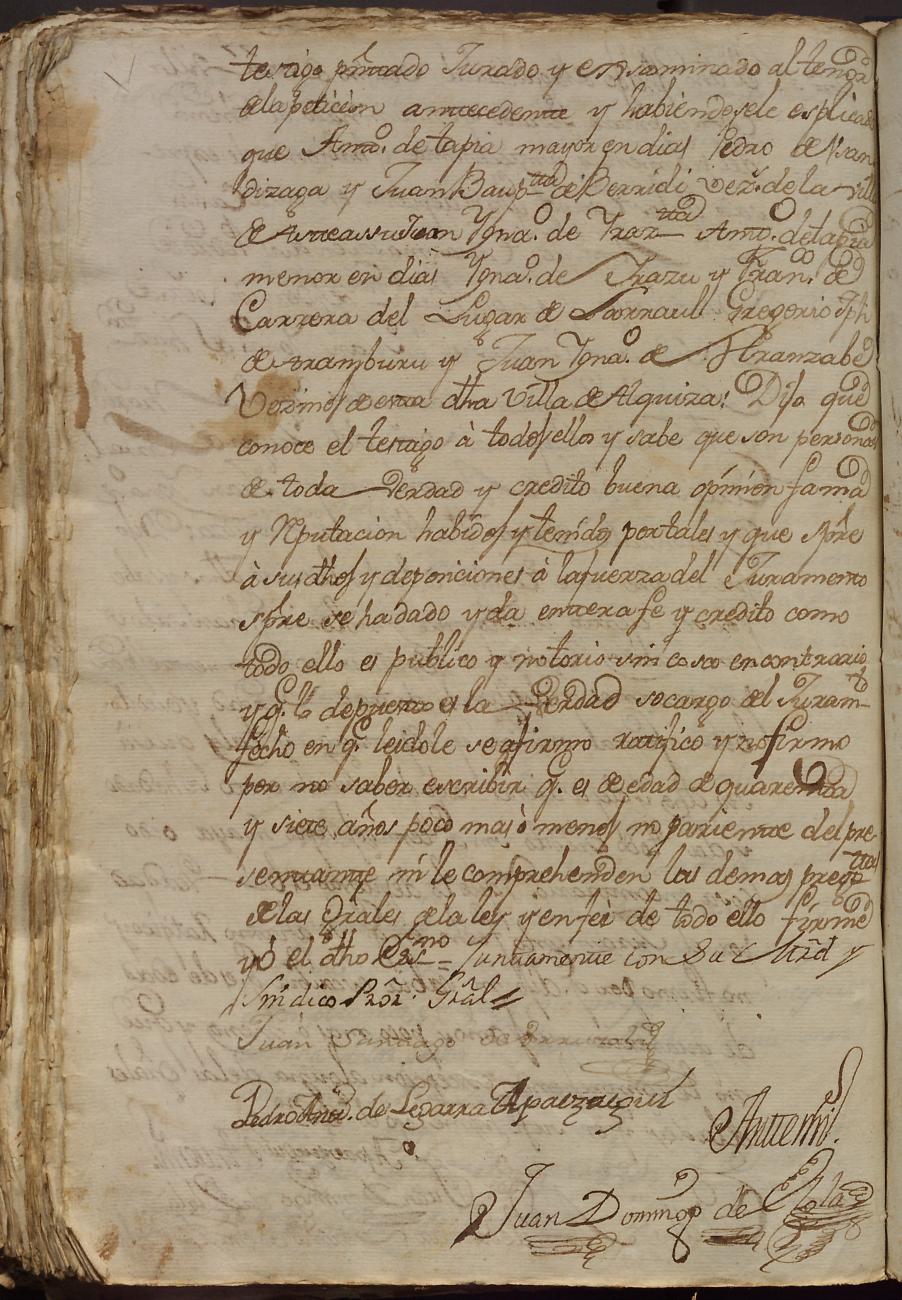 testigo pñtado Jurado y essaminado al tenor
de la peticion antecedente y habiendosele esplicado
que Antt.º de tapia mayor en dias Pedro de
dizaga y Juan Baup.tta de Berridi vez.s de la villa
de Asteassu Juan Ygna.º de Yzar Antt.º de tapia
menor en dias Ygna.º de Yrazu y Fran.co de
Carrera del Lugar de Larraul Gregorio Jph
de Aramburu y Juan Ygna.º de Aranzabe
Vezinos de esta dha Villa de Alquiza: Dijo que
conoce el testigo à todos ellos y sabe que son personas
de toda Verdad y credito buena opinion fama
y Reputacion habidos y tenidos por tales y que spre
à sus dhos y deposiciones à la fuerza del Juramento
spre se ha dado y da entera fe y credito como
todo ello es publico y notorio sin cosa en contrario
y q.e lo depuesto es la Verdad so cargo del Juram.to
fecho en q.e leidole se afirmo ratifico y no firmo
por no saber escribir q.e es de edad de quarenta
y siete años poco mas ò menos no pariente del pre-
sentante ni le comprehenden las demas preg.ttas
de las Grâles de la ley y en feè de todo ello firme
yo el dho Ess.no Juntamente con Su Mrd y
Sindico Pror. Gral
Juan Santiago de
Pedro Antt.º de Legarra Apaezegui
Antte mi.
Juan Domingo de Elola